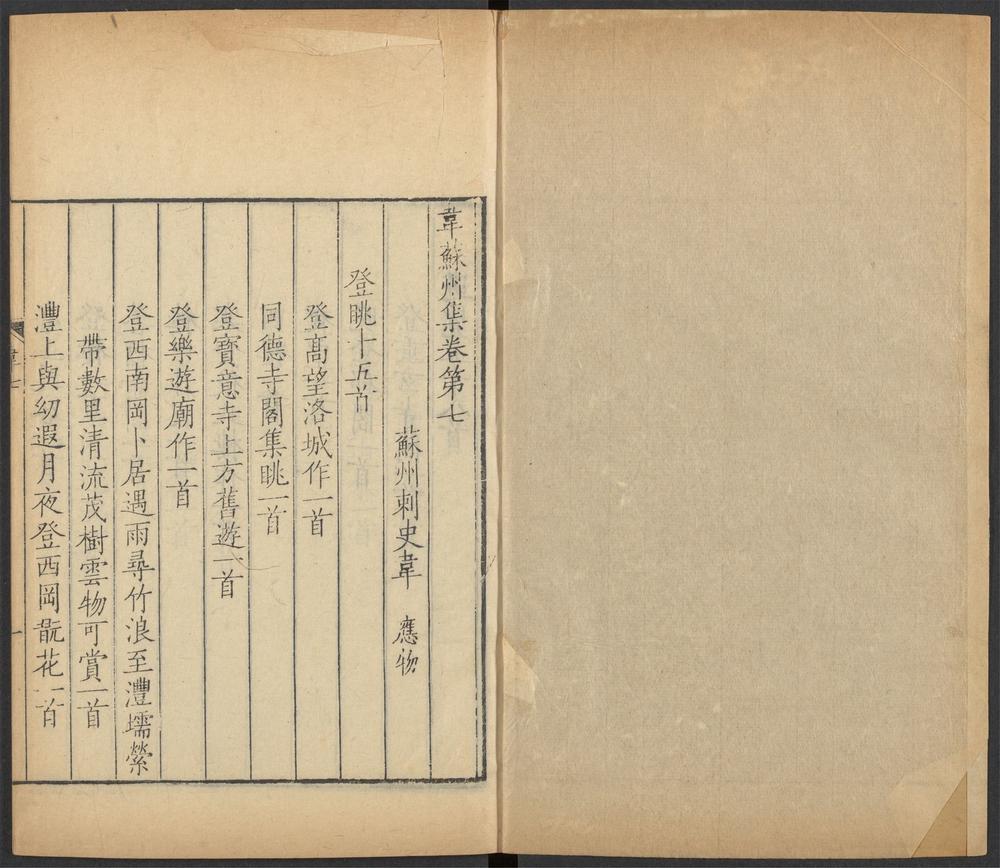 韋蘇州集卷第七
蘇州刺史韋 應物
登眺十五首
登髙望洛城作一首
同德寺閣集眺一首
登寶意寺上方舊遊一首
登樂遊廟作一首
登西南岡卜居遇雨尋竹浪至灃壖縈
帶數里清流茂樹雲物可賞一首
灃上與幼遐月夜登西岡翫花一首
韋七
一